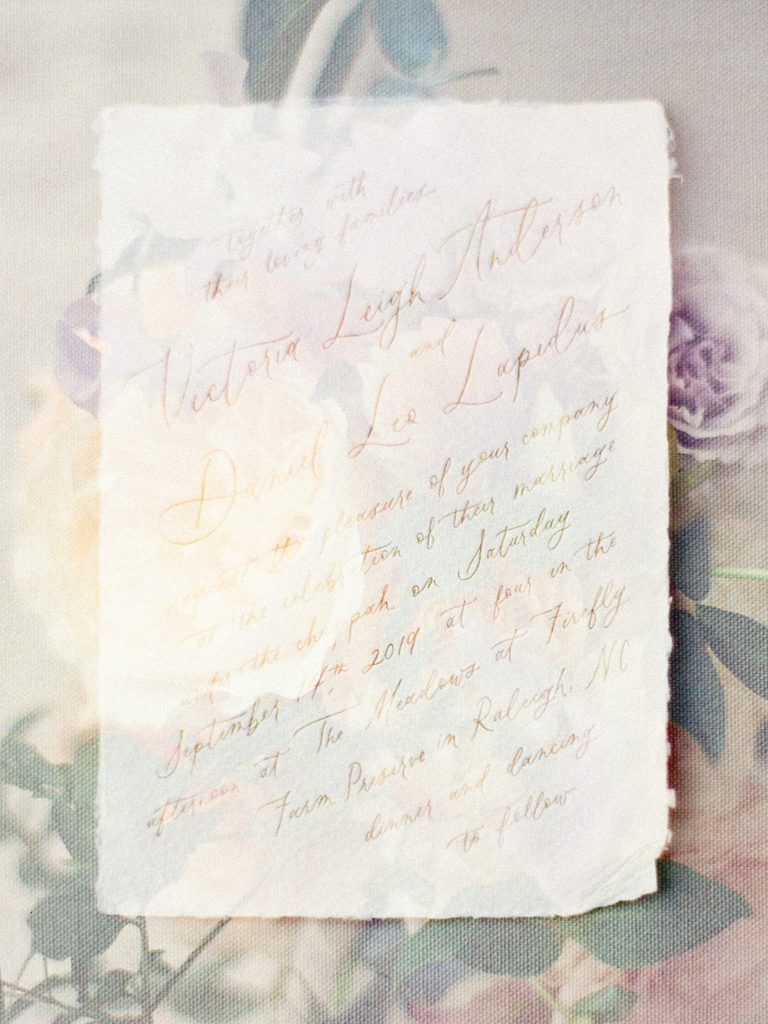 together with
their loving families
Victoria Leigh Anderson
and
Daniel Leo Lapidus
request the pleasure of your company
at the celebration of their marriage
under the chuppah on Saturday
September 14th 2019 at four in the
afternoon at The Meadows at Firefly
Farm Preserve in Raleigh, NC
dinner and dancing
to follow